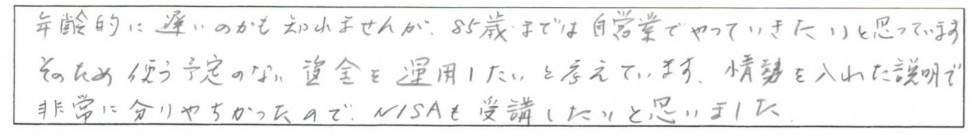 年齢的に遅いのかも知れませんが、85歳までは自営業でやっていきたいと思っています
そのため使う予定のない資金を運用したいと考えています、情勢を入れた説明で
非常に分りやすかったので、NISAも受講したいと思いました